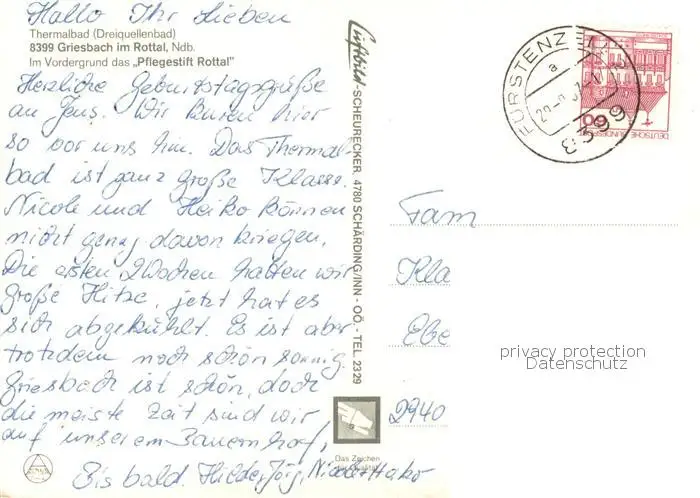 Hallo Ihr Lieben
Thermalbad (Dreiquellenbad)
8399 Griesbach im Rottal, Ndb.
Im Vordergrund das „Pflegestift Rottal"
Herzliche Geburtstagsgrüße
an Jens. Wir kuren hier
so vor uns hin. Das Thermal-
bad ist ganz große Klasse.
Nicole und Heiko können
nicht genug davon kriegen.
Die ersten 2 Wochen hatten wir
große Hitze, jetzt hat es
sich abgekühlt. Es ist aber
trotzdem noch schön sonnig.
Griesbach ist schön, doch
die meiste Zeit sind wir
auf unserem Bauernhof,
Bis bald. Hilde, Jörg, Nicole + Heiko
Luftbild-SCHEURECKER, 4780 SCHÄRDING/INN - OÖ, - TEL. 2329
Das Zeichen
für Qualität
FÜRSTENZELL
a
8399
60
DEUTSCHE BUNDESPOST
Fam
Kla
Ebe
privacy protection
Datenschutz
2940